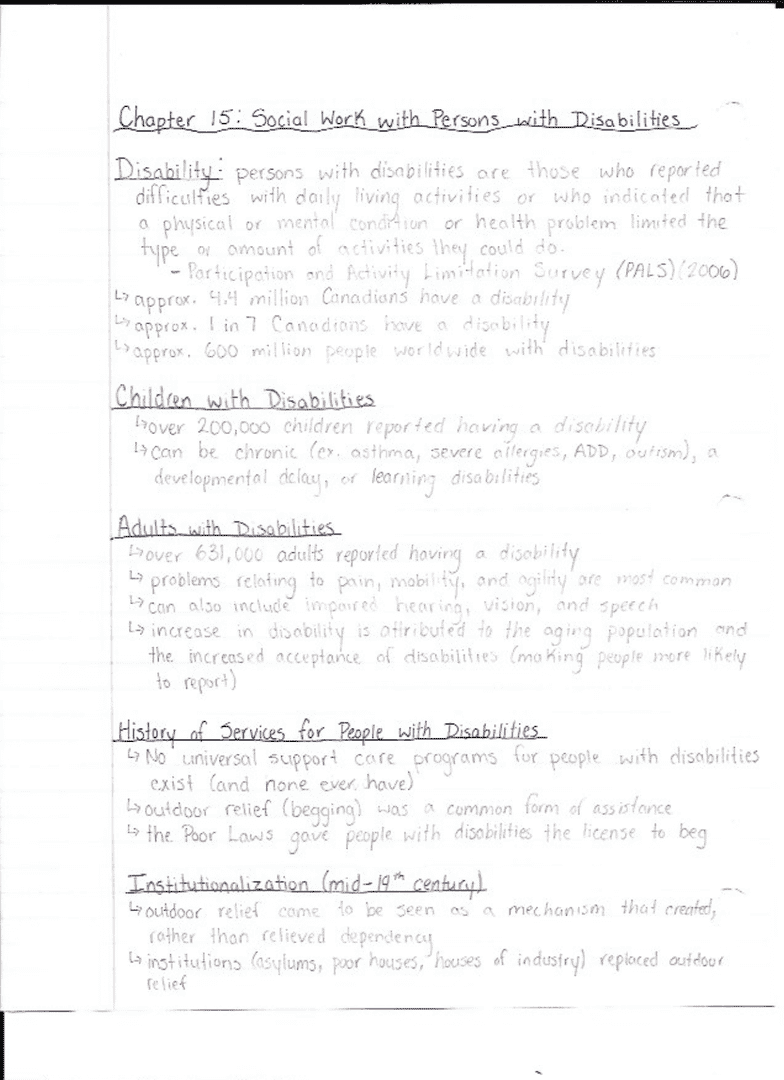 Chapter 15: Social Work with Persons with Disabilities
Disability: persons with disabilities are those who reported
difficulties with daily living activities or who indicated that
a physical or mental condition or health problem limited the
type or amount of activities they could do.
- Participation and Activity Limitation Survey (PALS)(2006)
↳ approx. 4.4 million Canadians have a disability
↳ approx. 1 in 7 Canadians have a disability
↳ approx. 600 million people worldwide with disabilities
Children with Disabilities
↳ over 200,000 children reported having a disability
↳ can be chronic (ex. asthma, severe allergies, ADD, autism), a
developmental delay, or learning disabilities
Adults with Disabilities
↳ over 631,000 adults reported having a disability
↳ problems relating to pain, mobility, and agility are most common
↳ can also include impaired hearing, vision, and speech
↳ increase in disability is attributed to the aging population and
the increased acceptance of disabilities (making people more likely
to report)
History of Services for People with Disabilities
↳ No universal support care programs for people with disabilities
exist (and none ever have)
↳ outdoor relief (begging) was a common form of assistance
↳ the Poor Laws gave people with disabilities the license to beg
Institutionalization (mid-19th century)
↳ outdoor relief came to be seen as a mechanism that created,
rather than relieved dependency
↳ institutions (asylums, poor houses, houses of industry) replaced outdour
relief